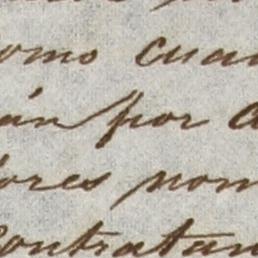 como cua
án por a
dores nom
Contratan